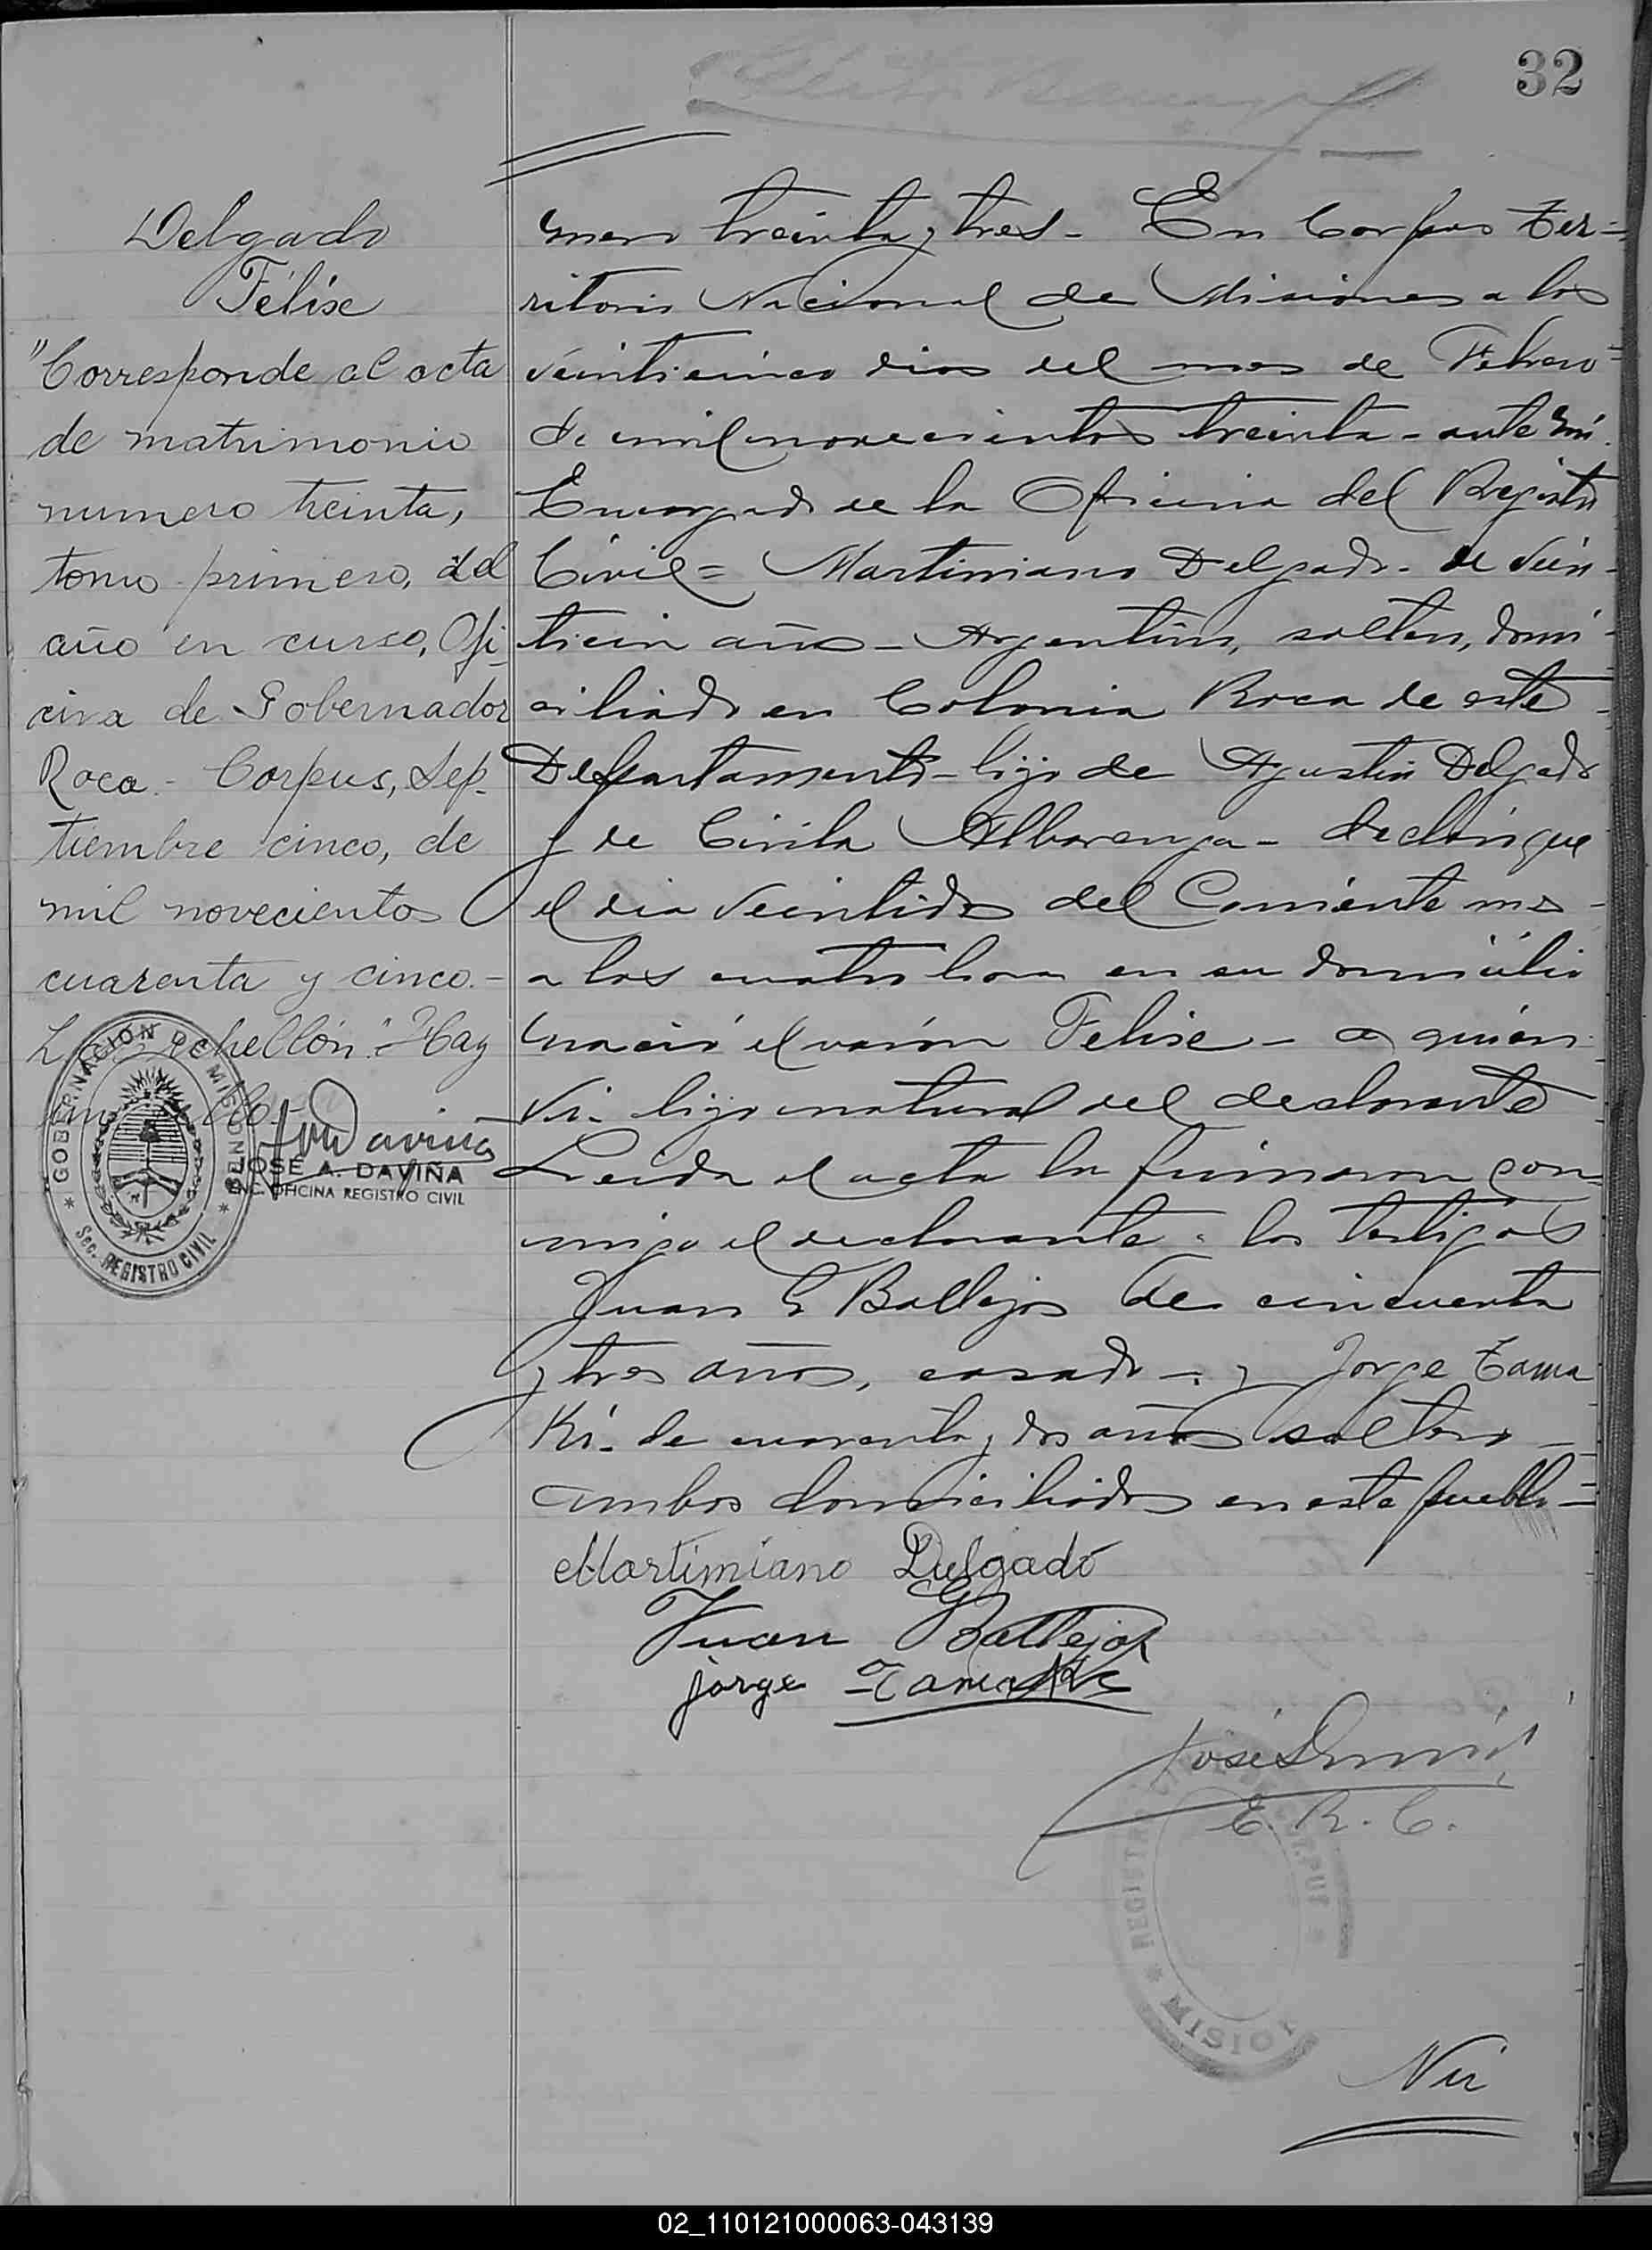 32
Delgado
Félix
"Corresponde al acta
de matrimonio
numero treinta,
tomo primero, del
año en curso, Ofi-
cina de Gobernador
Roca.- Corpus, Sep-
tiembre cinco, de
mil novecientos
cuarenta y cinco.-
Hay
GOBERNACIÓN DE MISIONES
Sec. REGISTRO CIVIL
JOSÉ A. DAVIÑA
ENC. OFICINA REGISTRO CIVIL
mero treinta y tres - En Corpus Ter-
ritorio Nacional de Misiones a los
veinticinco dias del mes de Febrero
de mil novecientos treinta - ante mí
Encargado de la Oficina del Registro
Civil = Martimiano Delgado - de vein-
años - Argentino, soltero, domi-
ciliado en Colonia Roca de este
Departamento - hijo de Agustin Delgado
y de Cirila Albarenga - declaró que
el dia veintidos del Corriente mes
a las cuatro horas en su domicilio
nació el varón Felise - a quien
vi. hijo natural del declarante
Leida el acta la firmaron con-
migo el declarante y los testigos
Juan G Ballejos de cincuenta
y tres años, casado - y Jorge Tama
ki - de cuarenta y dos años soltero -
ambos domiciliados en este pueblo -
Martimiano Delgado
Juan G Ballejos
Jorge Tamaki
E. R. C.
REGISTRO CIVIL
MISION
Nú
02_110121000063-043139